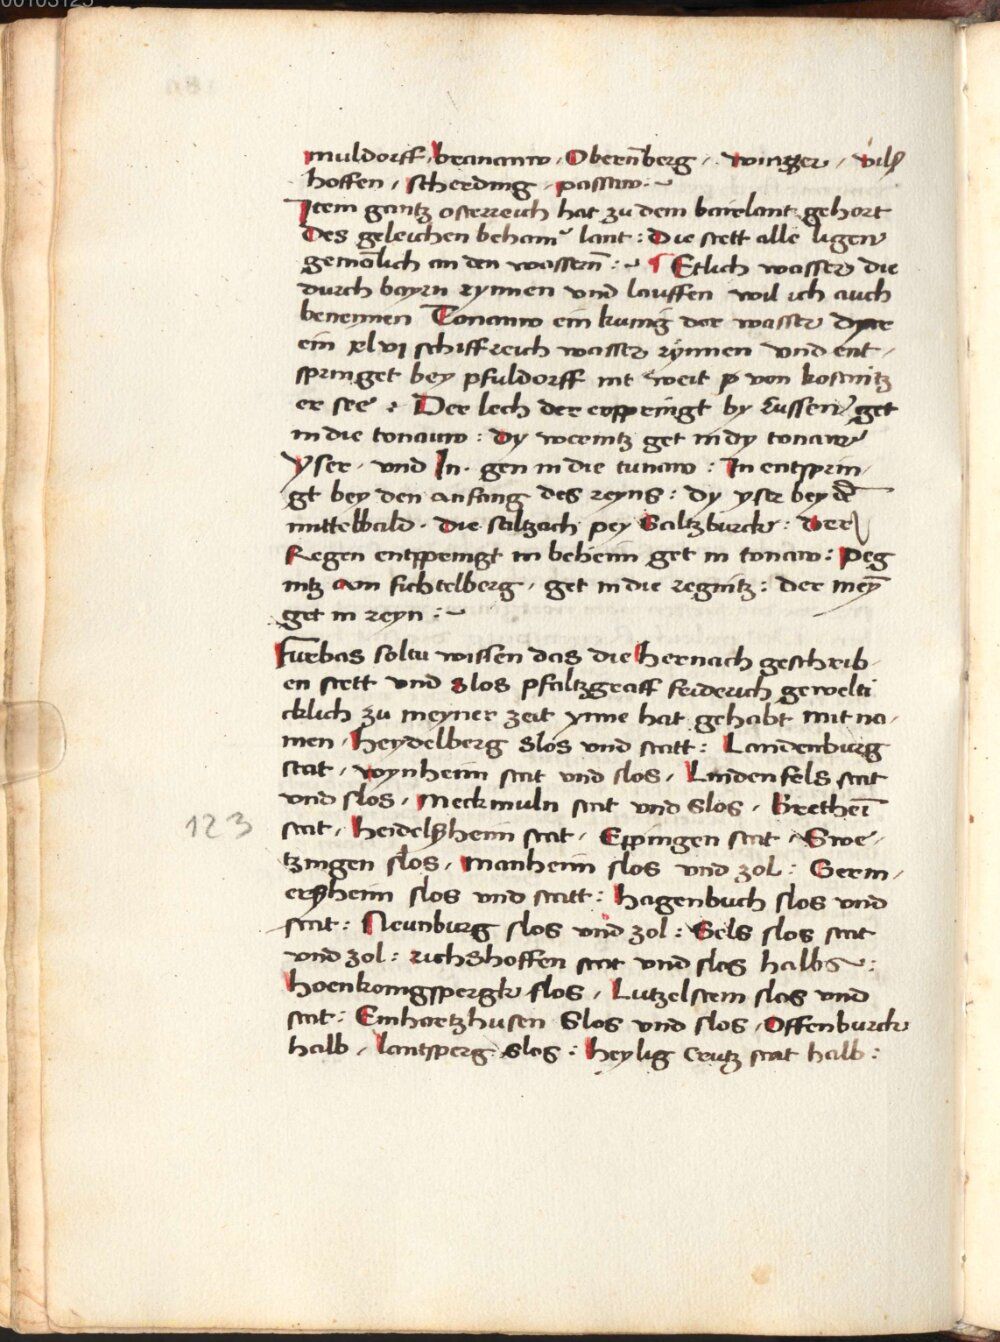 muldorff, branaw, Obernberg, winger, vilß
hoffen, scherding, passaw.
Item gantz osterreich hat zu dem bairelant gehort
Des geleichen beham lant: Die stett alle ligen
gemõlich an den wassern̄: ¶ Etlich wasser die
durch bayrn rynnen vnd lauffen wil ich auch
benennen Tonauw ein kunig der wasser
ein xlvi schiffreich wasser rynnen vnd ent,
springet bey pfuldorff nit weit von kostnitz
er see: Der lech der erspringt by Fussen get
in die tonauw: Dy wernitz get in dy tonaw
Yser, vnd In, gen in die tunaw: In entsprin,
gt bey den anfang des reyns: dy yser bey d̄
mittelbald. die saltzach pey Saltzburck: Der
Regen entspringt in behein get in tonaw: Peg
nitz am fichtelberg, get in die regnitz: der meyn̄
get in reyn:
Furbas soltu wissen das die hernach geschrib,
en stett vnd slos pfaltzgraff friderich gewelti
cklich zu meyner zeit ynne hat gehabt mit na,
men, Heydelberg slos vnd statt: Landenburg
stat, wynheim stat vnd slos, Lindenfels stat
vnd slos, Meckmuln stat vnd slos, Brethen̄
123
stat, Heidelßheim stat, Eppingen stat, Swe,
tzingen slos, Manheim slos vnd zol: Germ,
erßheim slos vnd statt: Hagenbuch slos vnd
stat: Neunburg slos vnd zol: Sels slos stat
vnd zol: richshoffen stat vnd slos halbs:
Hoenkonigspergk slos, Lutzelstein slos vnd
stat: Einhartzhusen Slos vnd slos, Offenburck
halb, lantsperg slos: Heylig Crutz stat halb: